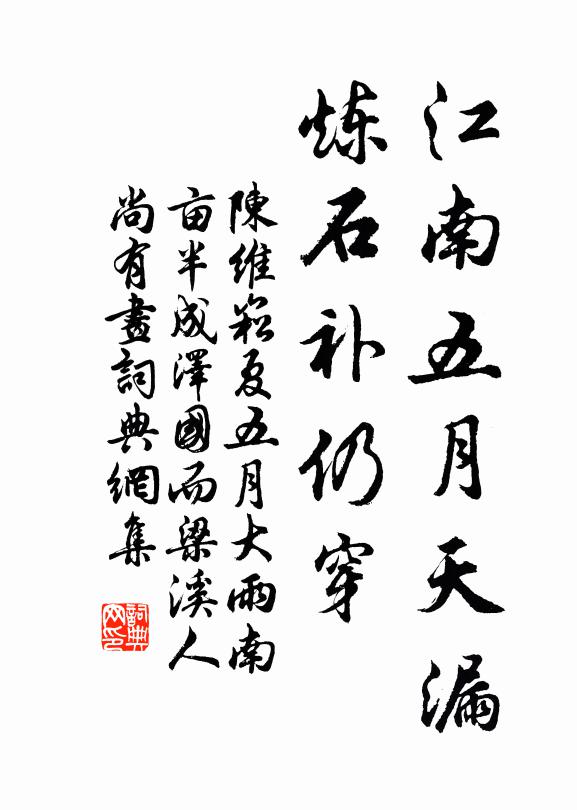 江南五月天漏
炼石补仍穿
陳維崧夏五月大雨南
亩半成澤國而梁溪人
尚有畫詞典網集
詞典网印